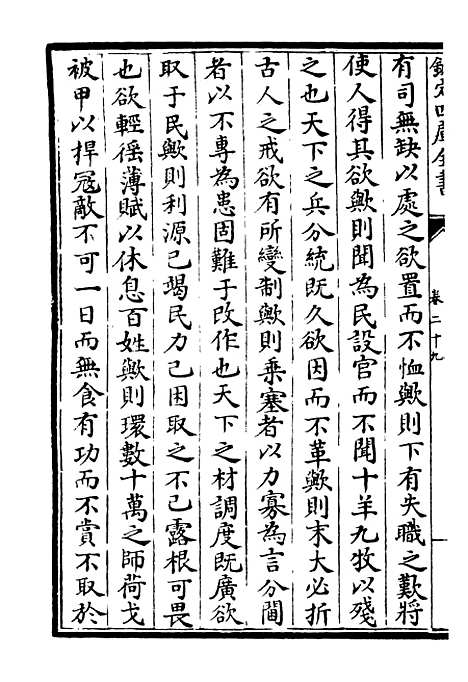 欽定四庫全書
卷二十九
有司無缺以處之欲置而不恤歟則下有失職之歎將
使人得其欲歟則聞為民設官而不聞十羊九牧以殘
之也天下之兵分統既久欲因而不革歟則末大必折
古人之戒欲有所變制歟則乗塞者以力寡為言分閫
者以不專為患固難于改作也天下之材調度既廣欲
取于民歟則利源已竭民力已困取之不已露根可畏
也欲輕徭薄賦以休息百姓歟則環數十萬之師荷戈
被甲以捍冦敵不可一日而無食有功而不賞不取於